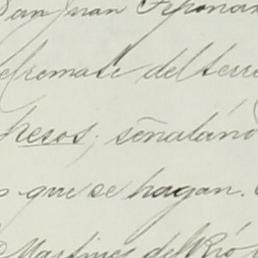 San Juan
el remate del terre
pesos; señaland
que se hagan.
Martines del Río